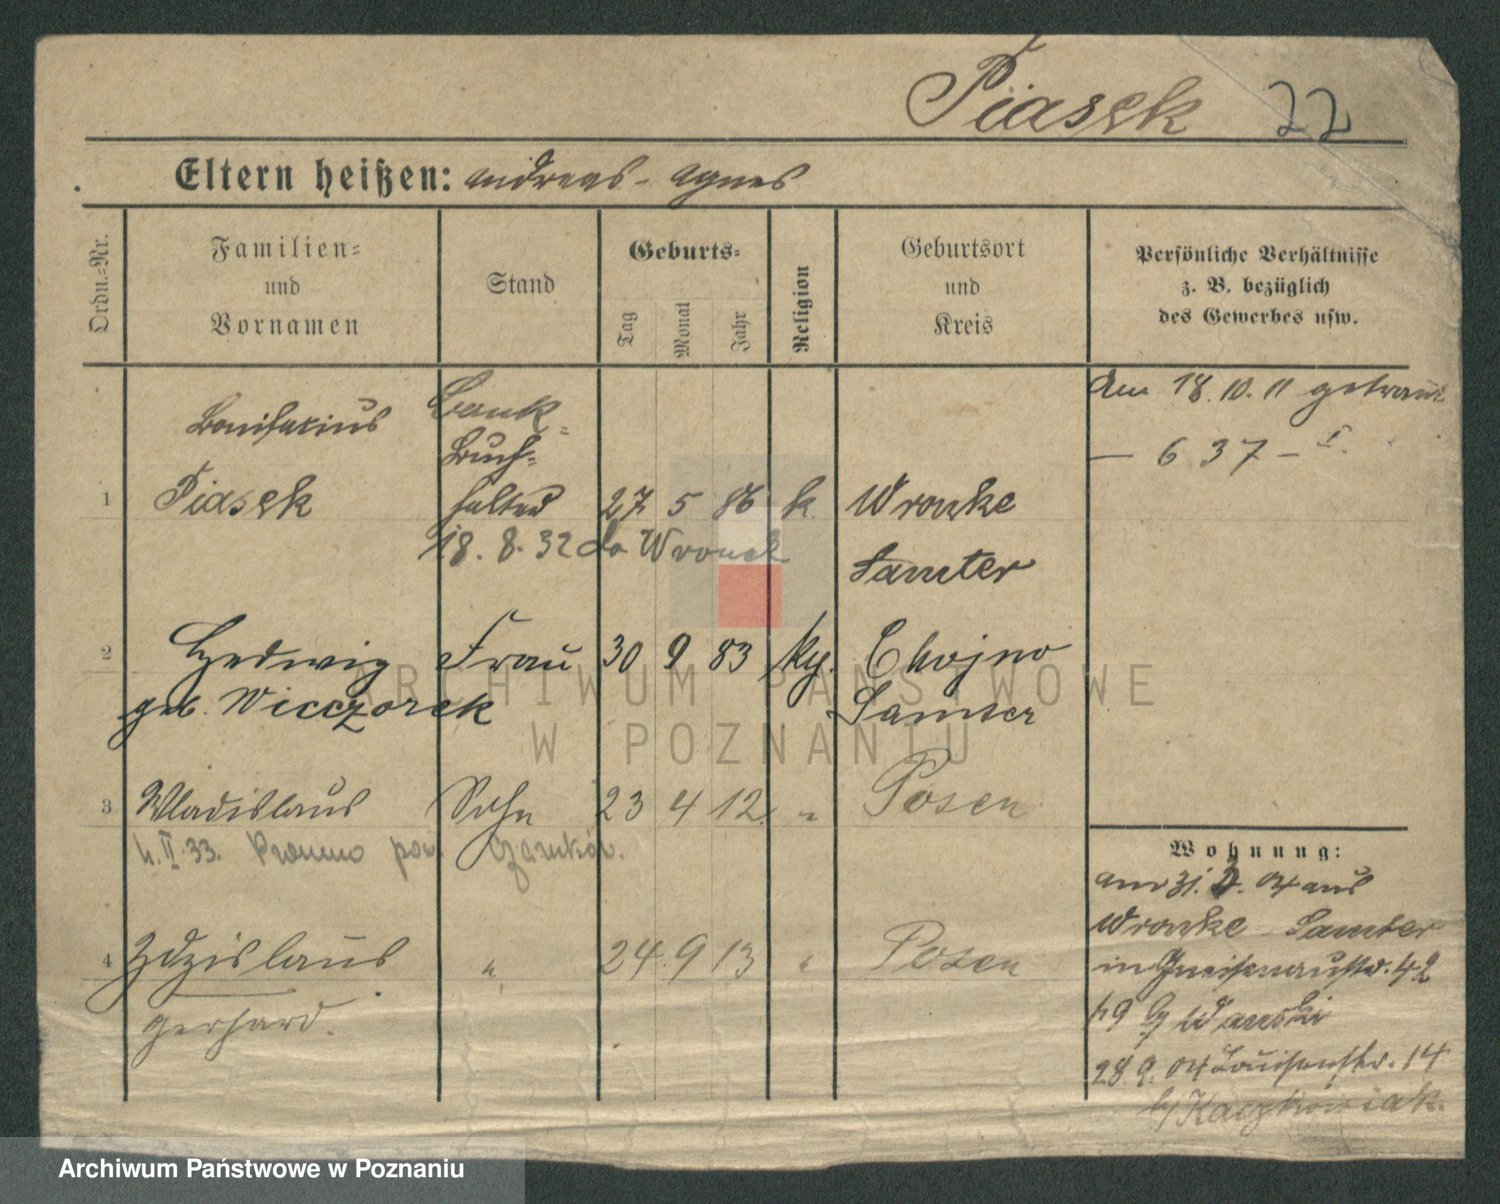 Piasek 22
Eltern heißen: Andreas - Agnes
Ordn.-Nr.
Familien-
und
Vornamen
Stand
Geburts-
Tag
Monat
Jahr
Religion
Geburtsort
und
Kreis
Persönliche Verhältnisse
z. B. bezüglich
des Gewerbes usw.
Am 18.10.11 getraut
— 637 — I.
Bonifacius Bank-
Buch-
1 Piasek halter 27 5 86 k. Wronke
18. 8. 32 do Wronek
Samter
2 Hedwig Frau 30 9 83 kg. Chojno
geb. Wieczorek Samter
3 Wladislaus Sohn 23 4 12. " Posen
4. II. 33. pow. Czarnków.
4 Zdzislaus " 24. 9 13 " Posen
Gerhard.
Wohnung:
am 31. 04 aus
Wronke Samter
in Gneisenaustr.
28. 9. 04 Louisenstr. 14
b/ Kaczkowiak.
ARCHIWUM PAŃSTWOWE
W POZNANIU
Archiwum Państwowe w Poznaniu